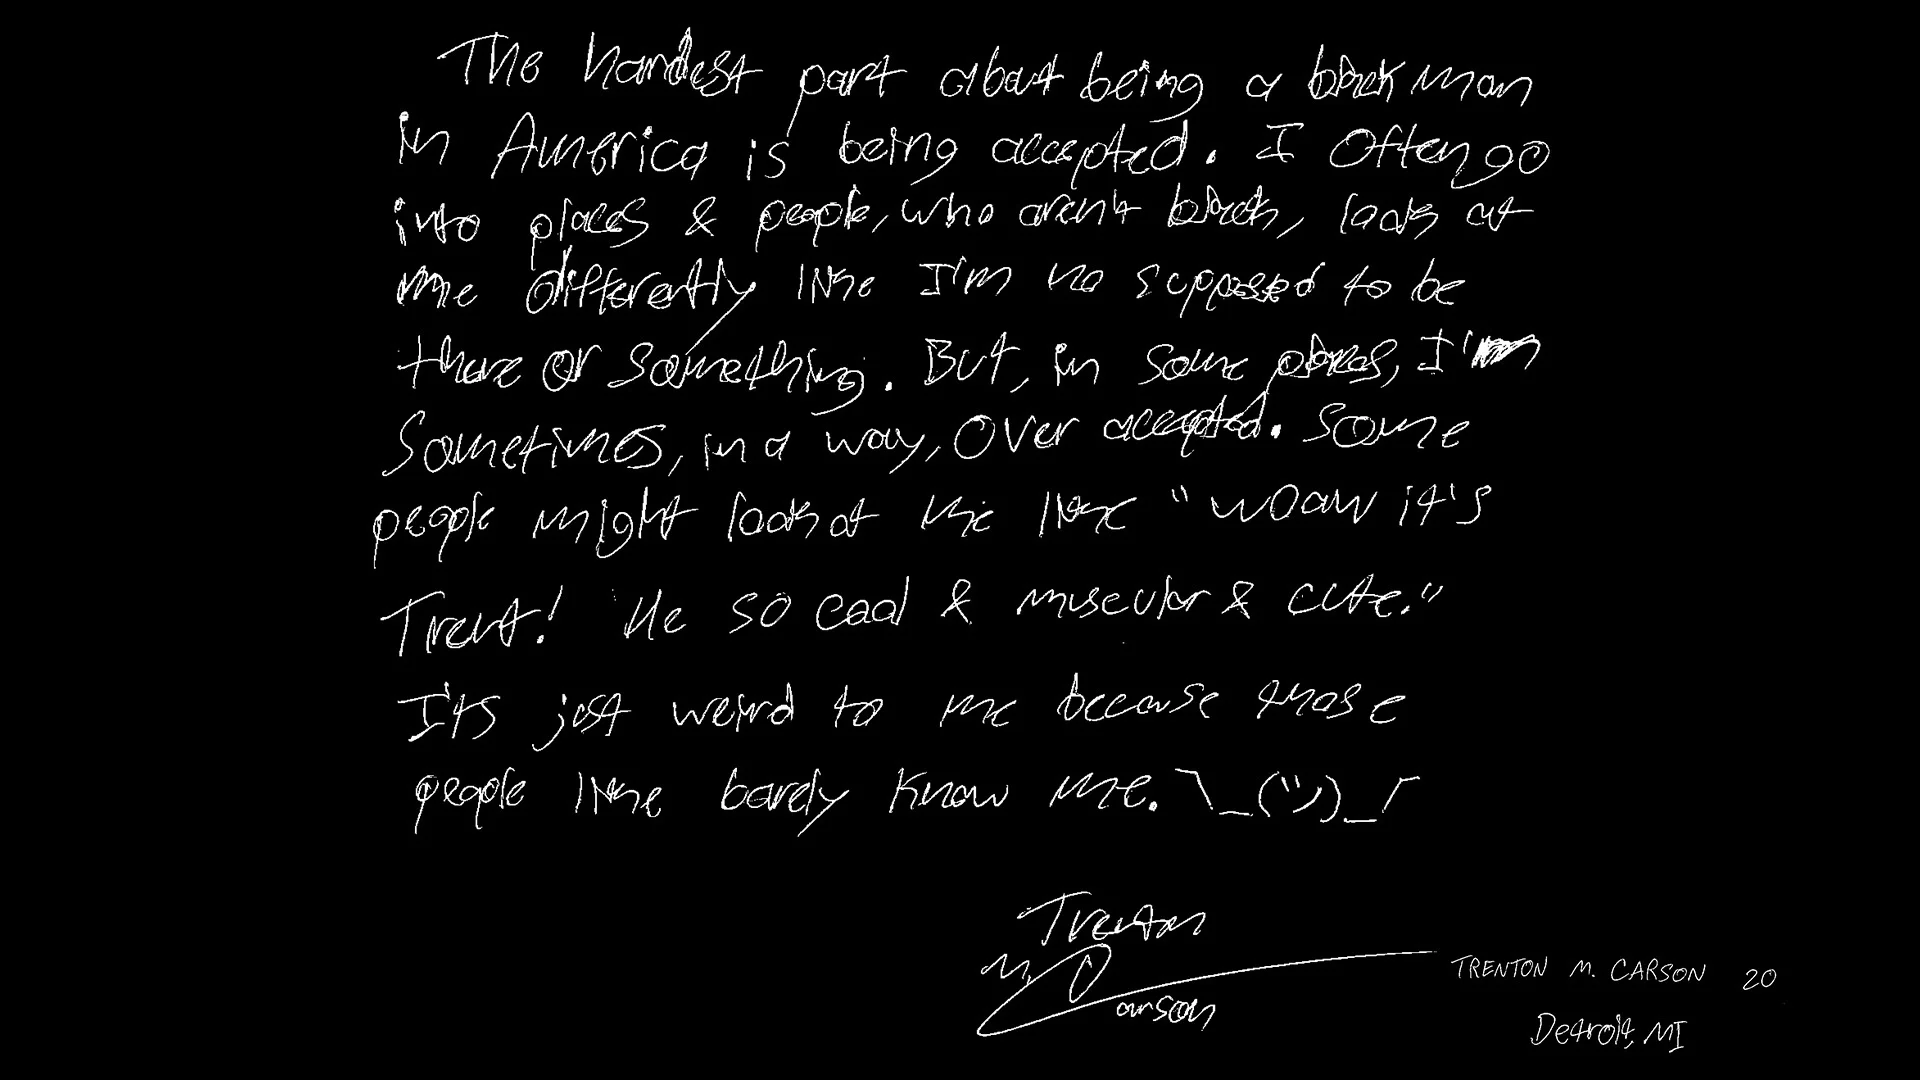 The hardest part about being a black man
in America is being accepted. I often go
into places & people, who aren't black, look at
me differently like I'm no supposed to be
there or something. But, in some places, I'm
sometimes, in a way, over accepted. Some
people might look at me like "woaw it's
Trent! He so cool & muscular & cute."
It's just weird to me because those
people like barely know me. ¯\_(ツ)_/¯
Trenton
M. Carson
TRENTON M. CARSON 20
Detroit, MI